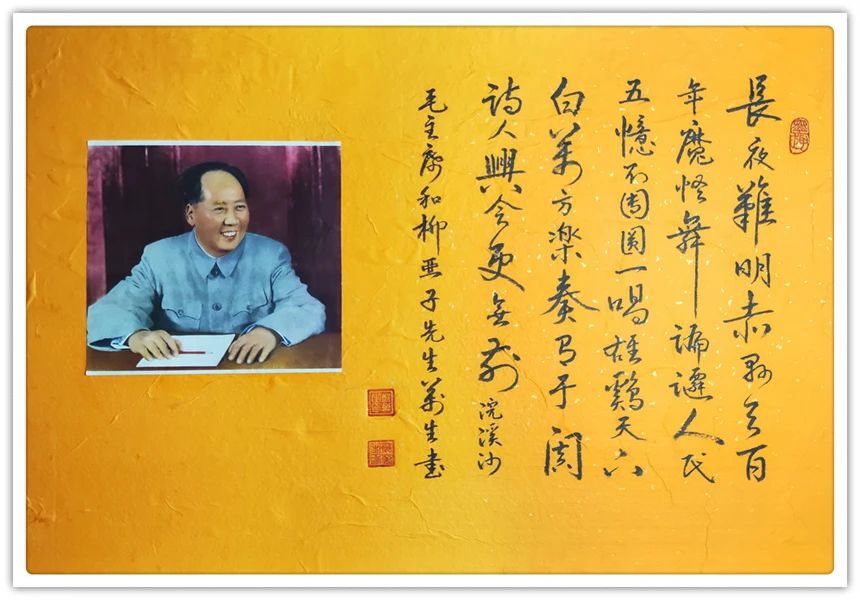 長夜難明赤县天百
年魔怪舞諞遷人民
五憶不團圓一唱雄鷄天下
白萬方樂奏有于闐
詩人興會更無前 浣溪沙
毛主席和柳亞子先生萬生書